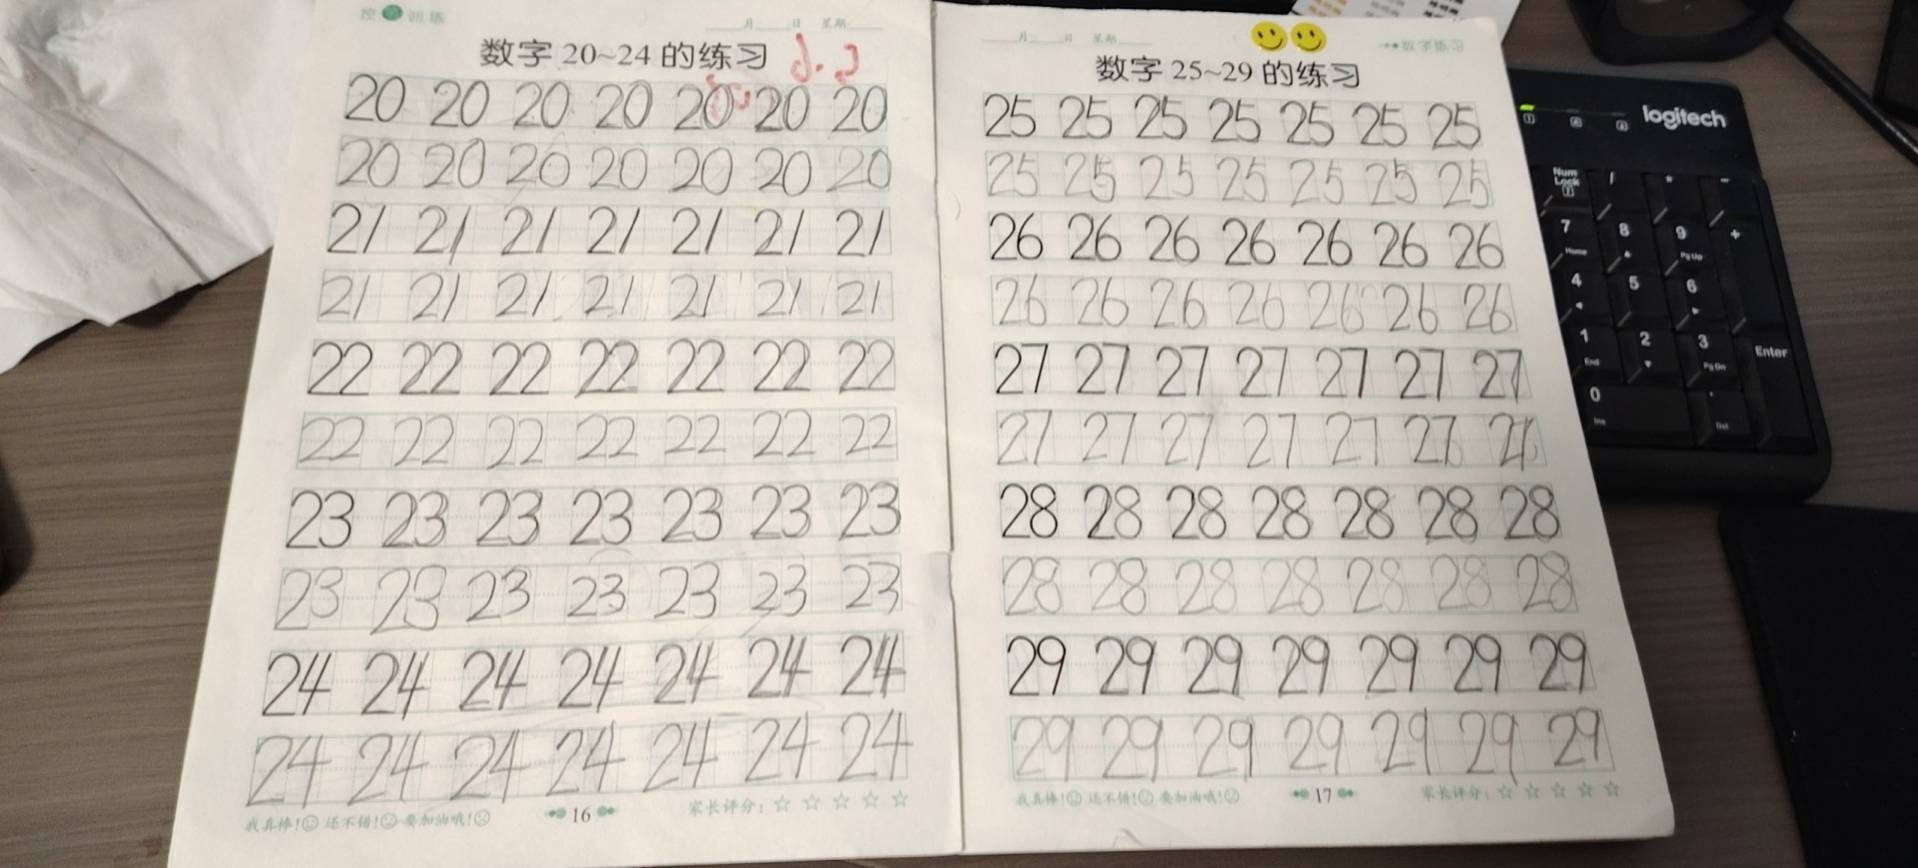 控 训练
月 日 星期
数字 20~24 的练习
20 20 20 20 20 20 20
20 20 20 20 20 20 20
21 21 21 21 21 21 21
21 21 21 21 21 21 21
22 22 22 22 22 22 22
22 22 22 22 22 22 22
23 23 23 23 23 23 23
23 23 23 23 23 23 23
24 24 24 24 24 24 24
24 24 24 24 24 24 24
我真棒! 还不错! 要加油哦!
16
家长评分: ☆ ☆ ☆ ☆ ☆
月 日 星期
数字练习
数字 25~29 的练习
25 25 25 25 25 25 25
25 25 25 25 25 25 25
26 26 26 26 26 26 26
26 26 26 26 26 26 26
27 27 27 27 27 27 27
27 27 27 27 27 27 27
28 28 28 28 28 28 28
28 28 28 28 28 28 28
29 29 29 29 29 29 29
29 29 29 29 29 29 29
我真棒! 还不错! 要加油哦!
17
家长评分: ☆ ☆ ☆ ☆ ☆
logitech
Num Lock / * -
7 8 9 +
Home PgUp
4 5 6
1 2 3 Enter
End PgDn
0 .
Ins Del